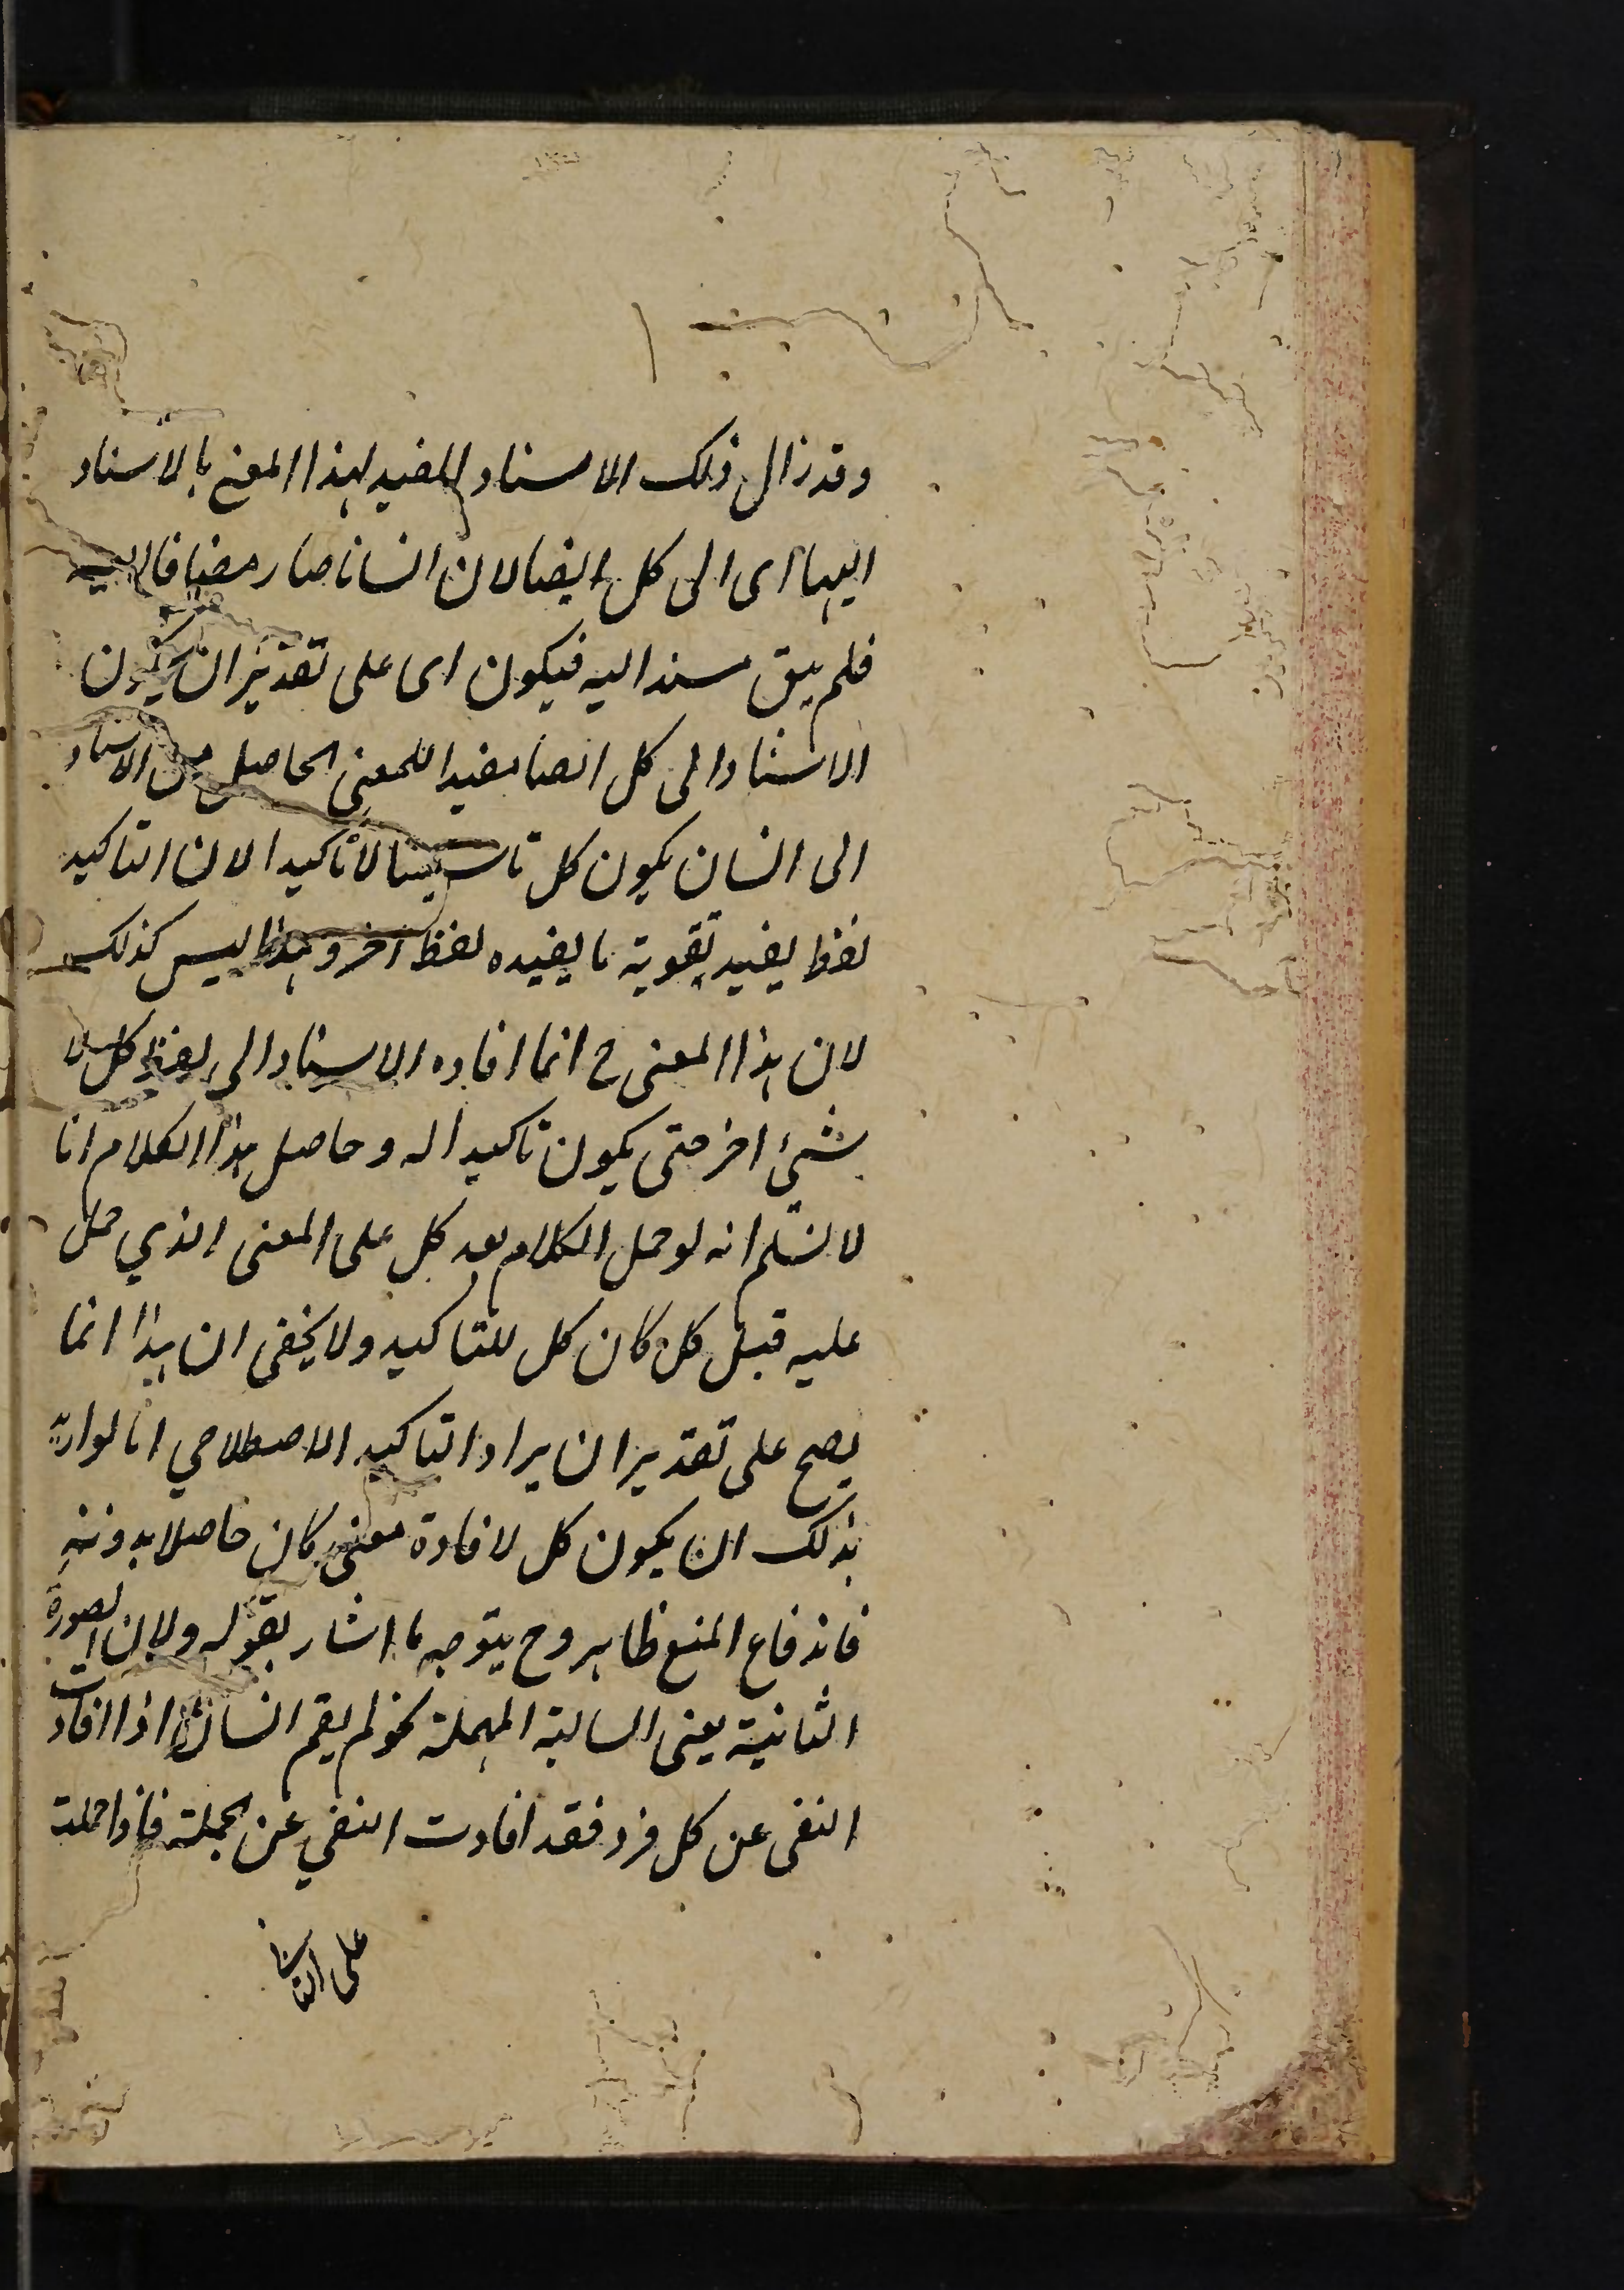 وقد زال ذلك الاسناد المفيد لهذا المعنى بالاسناد
اليها اى الى كل ايضا لان انسانا صار مضافا اليه
فلم يبق مسندا اليه فيكون اى على تقدير ان يكون
الاسناد الى كل ايضا مفيدا للمعنى الحاصل من الاسناد
الى انسان يكون كل تاسيسا لا تاكيدا لان التاكيد
لفظ يفيد تقوية ما يفيده لفظ اخر وهذا ليس كذلك
لان هذا المعنى ح انما افاده الاسناد الى لفظ كل لا
شئ اخر حتى يكون تاكيدا له وحاصل هذا الكلام انا
لا نسلم انه لو حمل الكلام بعد كل على المعنى الذي حمل
عليه قبل كل كان كل للتاكيد ولا يخفى ان هذا انما
يصح على تقدير ان يراد التاكيد الاصطلاحي اما لو اريد
بذلك ان يكون كل لافادة معنى كان حاصلا بدونه
فاندفاع المنع ظاهر وح يتوجه ما اشار بقوله ولان الصورة
الثانية يعنى السالبة المهملة نحو لم يقم انسان اذا افادت
النفى عن كل فرد فقد افادت النفي عن الجملة فاذا حملت
على الثاني